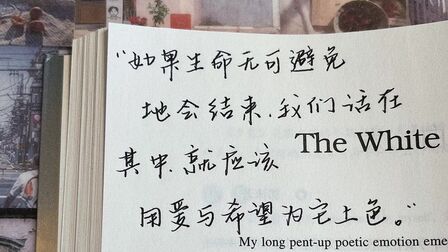 "如果生命无可避免
地会结束，我们活在
其中，就应该
The White
用爱与希望为它上色。"
My long pent-up poetic emotion eme